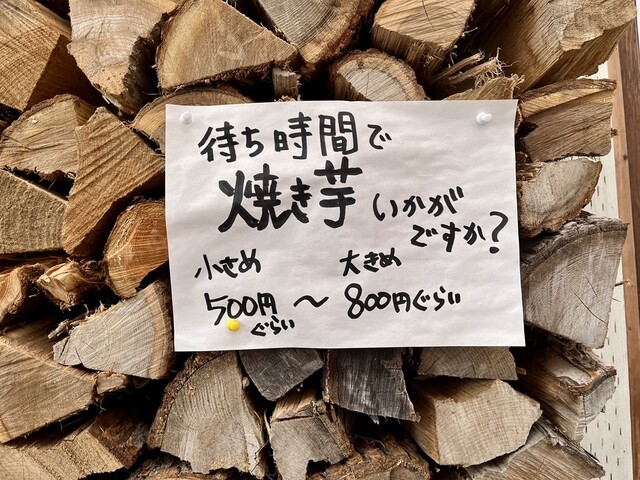 待ち時間で
焼き芋いかが
ですか?
小さめ 大きめ
500円ぐらい～800円ぐらい